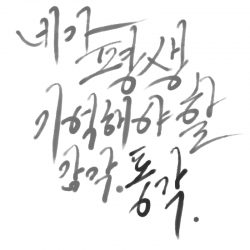 네가
평생
기억해야 할
감각. 통각.